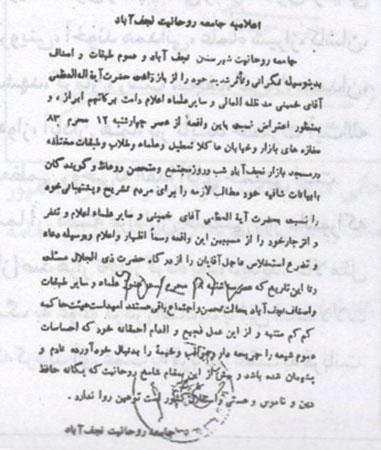 اعلامیه جامعه روحانیت نجف آباد
جامعه روحانیت شهرستان نجف آباد و عموم طبقات و اصناف
بدینوسیله نگرانی وتأثر شدید خود را از بازداشت حضرت آیة الله العظمی
آقای خمینی مد ظله العالی و سایر علماء اعلام دامت برکاتهم ابراز، و
بمنظور اعتراض نسبت باین واقعه از عصر چهارشنبه ۱۲ محرم ۸۳
مغازه های بازار وخیابان ها کلا تعطیل وعلماء وطلاب وطبقات مختلفه
درمسجد بازار نجف آباد شب وروز مجتمع ومتحصن ووعاظ وگویندگان
بابیانات کافیه خود مطالب لازمه را برای مردم تشریح وپشتیبانی خود
را نسبت بحضرت آیة الله العظمی آقای خمینی و سایر علماء اعلام و تنفر
و انزجار خود را از مسببین این واقعه رسماً اظهار و اعلام وبوسیله دعاء
و تضرع استخلاص عاجل آقایان را از درگاه حضرت ذی الجلال مسئلت
وتا این تاریخ که عصر محرم است علماء و سایر طبقات
واصناف نجف آباد بحالت تحصن واجتماع باقی هستند امید است هیئت حاکمه
کم کم متنبه و از این عمل فجیع و اقدام احمقانه خود که احساسات
عموم شیعه را جریحه دار و را بدنبال خود آورده نادم و
پشیمان شده باشد و از این بمقام شامخ روحانیت که یگانه حافظ
دین و ناموس و هستی و استقلال کشور است توهین روا ندارد.
جامعه روحانیت نجف آباد